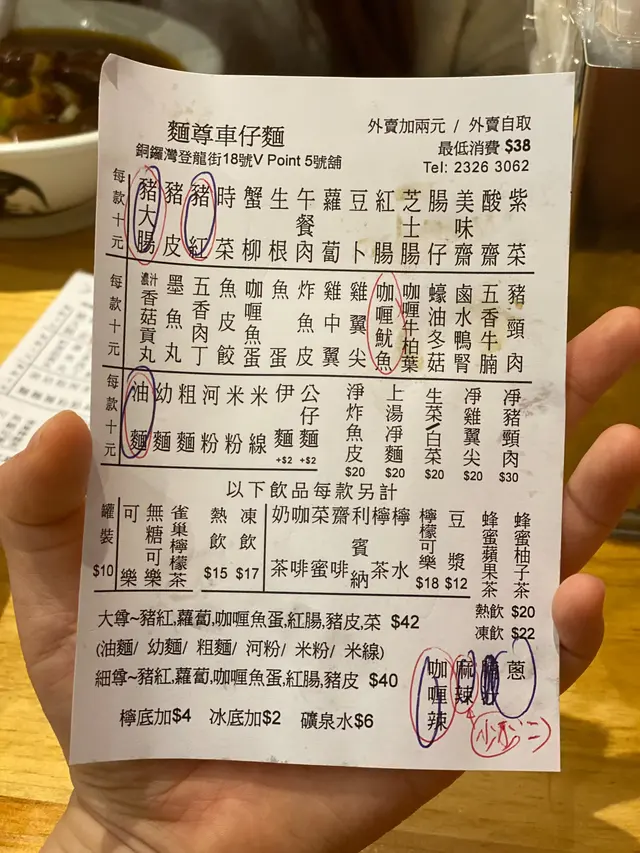 麵尊車仔麵
外賣加兩元 / 外賣自取
銅鑼灣登龍街18號V Point 5號舖
最低消費 $38
Tel: 2326 3062
每款十元
豬大腸
豬皮
豬紅
時菜
蟹柳
生根
午餐肉
蘿蔔
豆卜
紅腸
芝士腸
腸仔
美味齋
酸齋
紫菜
每款十元
濃汁香菇貢丸
墨魚丸
五香肉丁
魚皮餃
咖喱魚蛋
魚蛋
炸魚皮
雞中翼
雞翼尖
咖喱魷魚
咖喱牛柏葉
蠔油冬菇
鹵水鴨腎
五香牛腩
豬頸肉
每款十元
油麵
幼麵
粗麵
河粉
米粉
米線
伊麵 +$2
公仔麵 +$2
淨炸魚皮 $20
上湯淨麵 $20
生菜/白菜 $20
淨雞翼尖 $20
淨豬頸肉 $30
以下飲品每款另計
罐裝 $10
可樂
無糖可樂
雀巢檸檬茶
熱飲 $15
凍飲 $17
奶茶
咖啡
菜蜜
齋啡
利賓納
檸茶
檸水
檸檬可樂 $18
豆漿 $12
蜂蜜蘋果茶
蜂蜜柚子茶
熱飲 $20
凍飲 $22
大尊~豬紅,蘿蔔,咖喱魚蛋,紅腸,豬皮,菜 $42
(油麵/ 幼麵/ 粗麵/ 河粉/ 米粉/ 米線)
細尊~豬紅,蘿蔔,咖喱魚蛋,紅腸,豬皮 $40
檸底加$4 冰底加$2 礦泉水$6
咖喱辣
麻辣
蔥